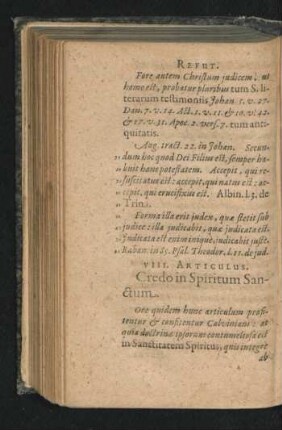 REFUT.
Fore autem Christum judicem, ut
homo est, probatur pluribus tum S. li-
terarum testimoniis Johan. 5. v. 27.
Dan. 7. v. 14. Act. 1. v. 11. & 10. v. 42.
& 17. v. 31. Apoc. 1. vers. 7. tum anti-
quitatis.
Aug. tract. 22. in Johan. Secun-
dum hoc quod Dei Filius est, semper ha-
buit hanc potestatem. Accepit, qui re-
suscitatus est: accepit, qui natus est: ac-
cepit, qui crucifixus est. Albin. l. 3. de
Trin.
Forma illa erit judex, quæ stetit sub
judice: illa judicabit, quæ judicata est.
Judicata est enim iniquè, judicabit justè.
Raban. in Psal. Theodor. de jud.
VIII. ARTICULUS.
Credo in Spiritum San-
ctum.
Ore quidem hunc articulum profi-
tentur & confitentur Calviniani: at
quia doctrina ipsorum contumeliosa est
in Sanctitatem Spiritus, quis integrè